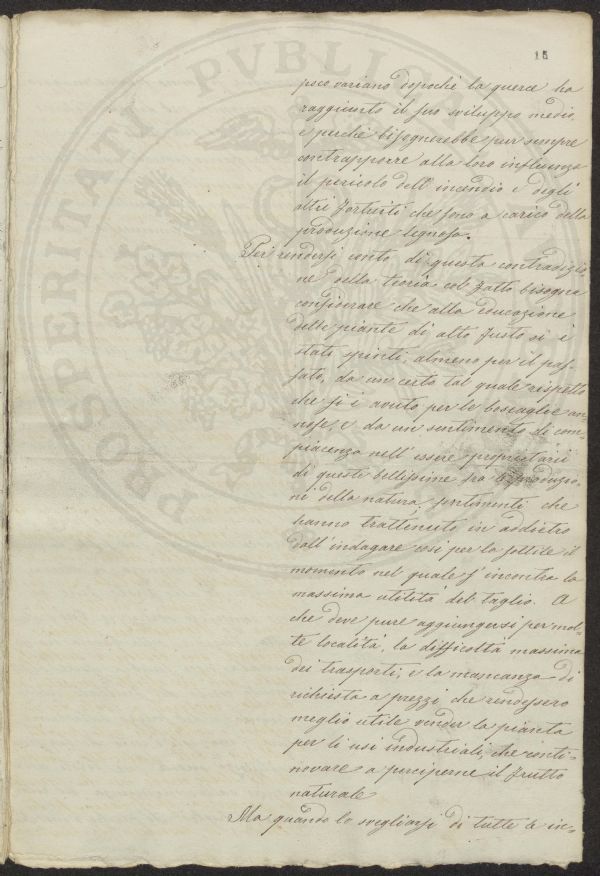 15
poco variano dopochè la querce ha
raggiunto il suo sviluppo medio,
e perchè bisognerebbe pur sempre
contrapporre alla loro influenza
il pericolo dell'incendio e degli
altri fortuiti che sono a carico della
produzione legnosa.
Per rendersi conto di questa contradizio
ne della teoria col fatto bisogna
considerare che alla educazione
delle piante di alto fusto si è
stati spinti, almeno per il pas=
sato, da un certo tal quale rispetto
che si è avuto per le boscaglie an
nose, e da un sentimento di com=
piacenza nell'essere proprietarii
di queste bellissime fra le produzio=
ni della natura, sentimenti che
hanno trattenuto in addietro
dall'indagare così per la sottile il
momento nel quale s'incontra la
massima utilità del taglio. A
che deve pure aggiungersi per mol=
te località, la difficoltà massima
dei trasporti, e la mancanza di
richiesta a prezzi che rendessero
meglio utile vender la pianta
per li usi industriali, che conti=
novare a perciperne il frutto
naturale
Ma quando lo svegliarsi di tutte le in=
PROSPERITATI PVBLIC